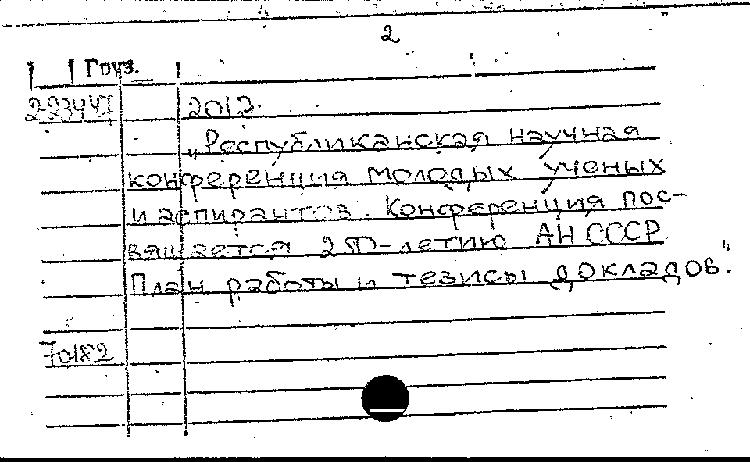 2
Груз.
2013.
„Республиканская научная
конференция молодых ученых
и аспирантов. Конференция пос-
вящается 250-летию АН СССР
План работы и тезисы докладов."
70182